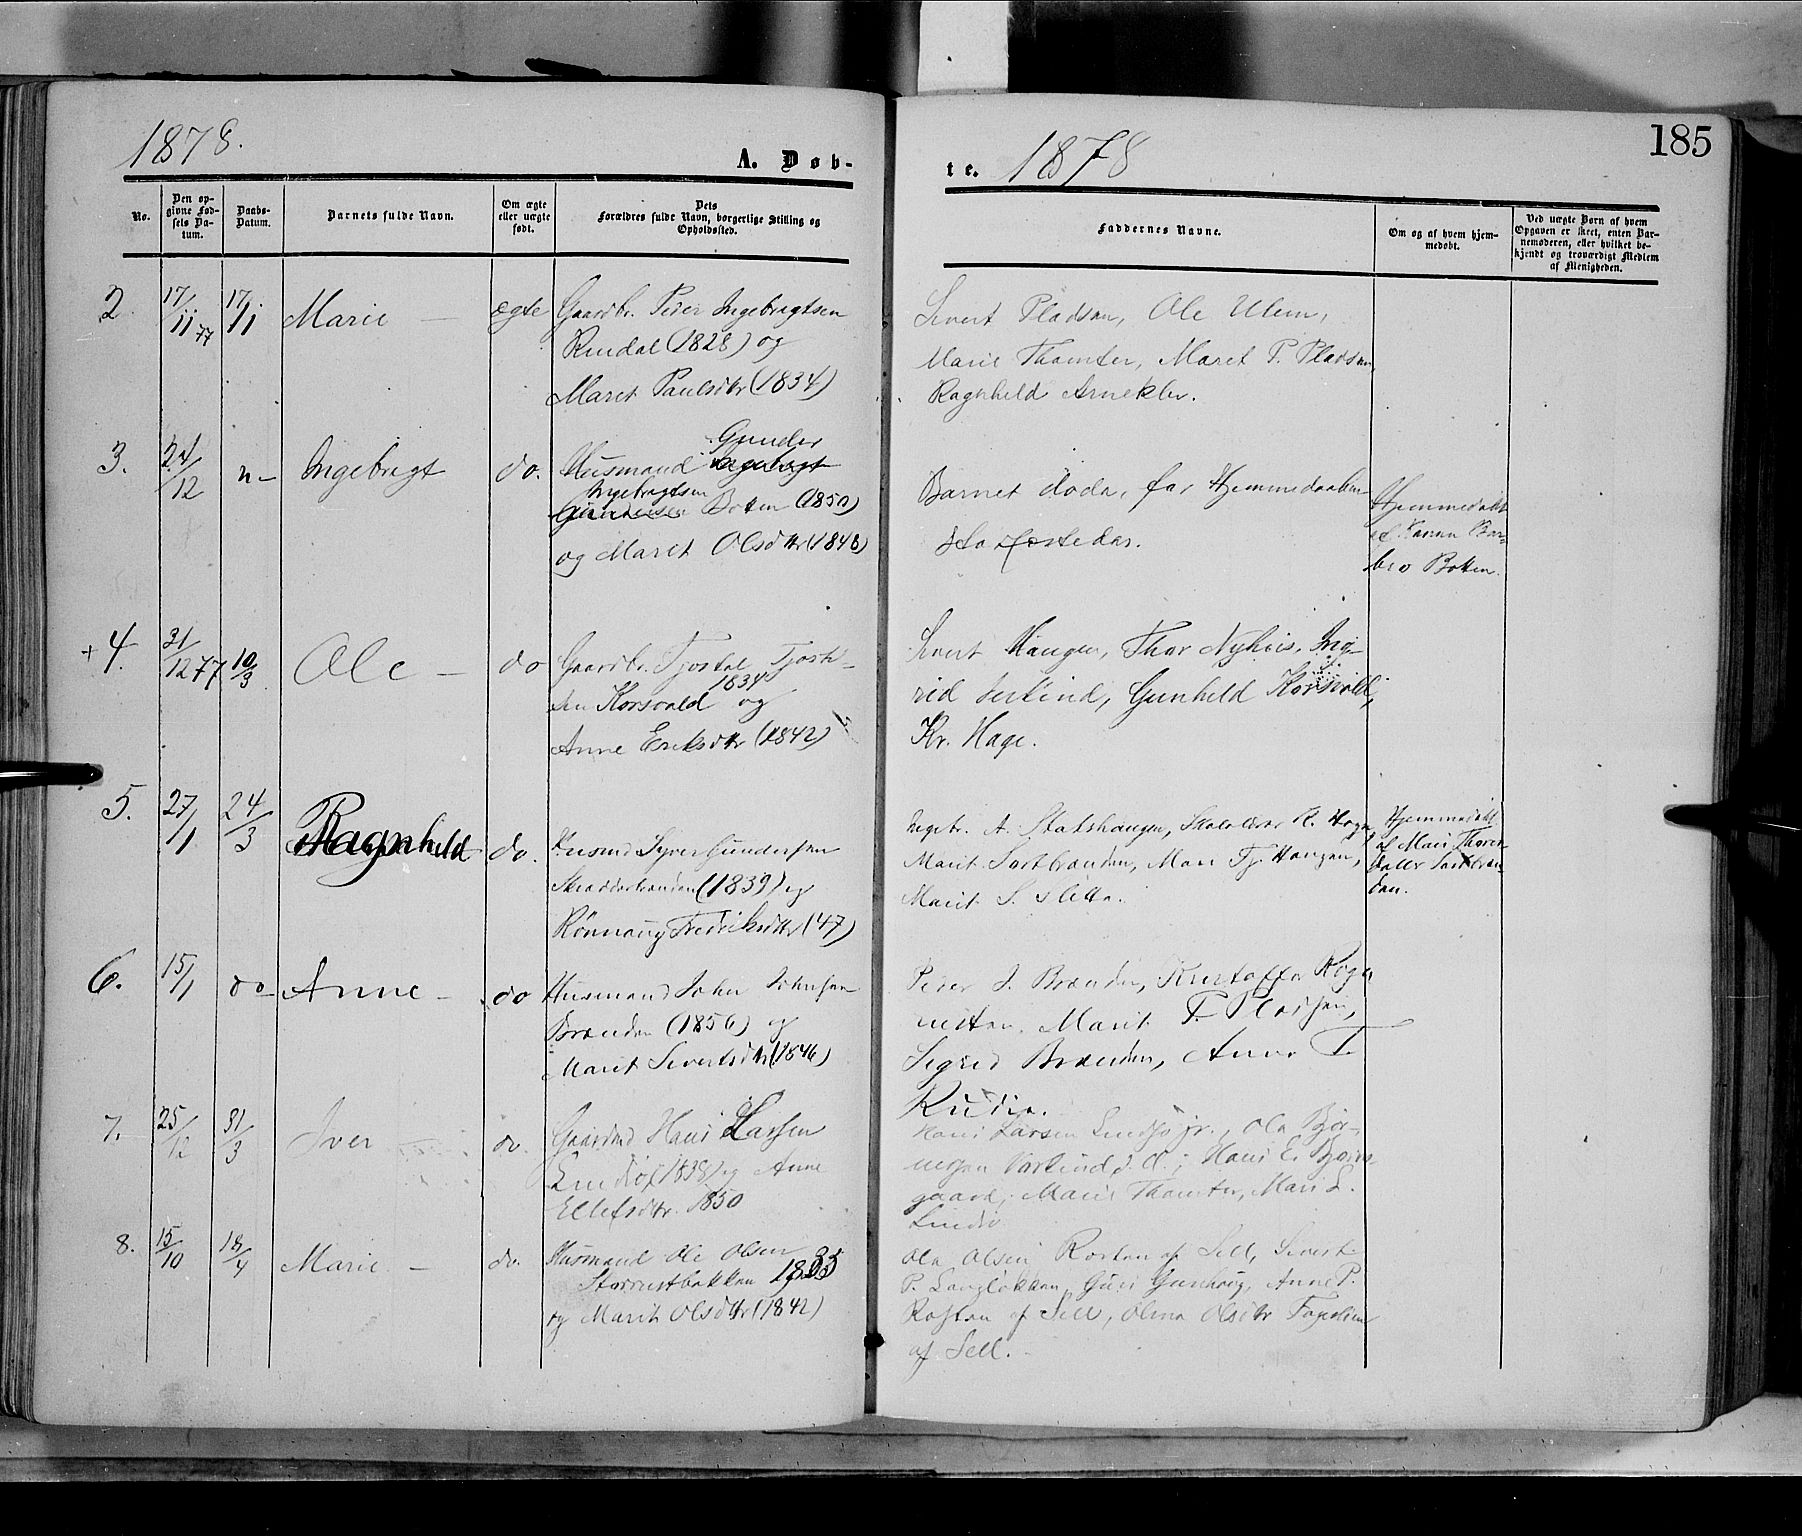 1878.
A. Døb-
No.
Den op-
givne Fød-
sels Da-
tum.
Daabs-
Datum.
Barnets fulde Navn.
Om ægte
eller uægte
født.
Dets
Forældres fulde Navn, borgerlige Stilling og
Opholdssted.
2.
17/11 77
17/11
Marie —
ægte
Gaardbr. Peder Ingebrigtsen
Rindal (1828) og
Maret Paulsdtr (1834)
3.
24/12
n-
Ingebrigt
do.
Gunder
Husmand
Ingebrigtsen
Botten (1850)
og Marit Olsdtr (1848)
+4.
31/12 77
10/3
Ole —
do
Gaardbr. Tjostel Tjostel-
sen Korsvold 1834 og
Anne Eriksdtr (1842)
5.
27/1
24/3
Ragnhild
do.
Husmd Syver Gundersen
(1839) og
Rønnaug Fredriksdtr (47)
6.
15/1
do
Anne —
do
Husmand John Johnsen
Brænden (1856) og
Marit Sivertsdtr (1846)
7.
25/12
31/3
Iver
do.
Gaardmd Hans Larsen
Lindsø (1838) og Anne
Ellefsdtr. 1850
8.
15/10
18/4
Marie —
do.
Husmand Ole Olsen
Storrustbakken 1835
og Marit Olsdtr (1842)
t e. 1878
185
Faddernes Navne.
Om og af hvem hjem-
medøbt.
Ved uægte Børn af hvem
Opgaven er skeet, enten Bar-
nemoderen, eller hvilket be-
kjendt og troværdigt Medlem
af Menigheden.
Sivert Pladsen, Ole Ulen,
Marie Thamter, Maret P. Pladsen
Ragnhild Arneklev.
Barnet døde, før Hjemmedaaben
stadfæstedes.
Hjemmedøbt
af Konen Bar-
bro Botten.
Sivert Haugen, Thor Nyhus, Ing-
rid Gunhild Korsvold,
Kr. Hage.
Ingebr. A. Statshaugen, Skolelærer R. Hage,
Marit Mari Tj. Haugen,
Marit S. Sletta.
Hjemmedøbt
af Mari Thores-
datter
Peder J. Brænden, Kristoffer
Marit T. Pladsen,
Sigrid Brænden, Anne T.
Rudi.
Hans Larsen Lindsø jr., Ola Bjør-
Hans E. Bjørn-
gaard, Marit Thamter, Mari L.
Lindsø
Ola Olsen Rosten af Sell, Sivert
P. Langløkken, Guri Anne P.
Rosten af Sell, Olina Olsdtr
af Sell.